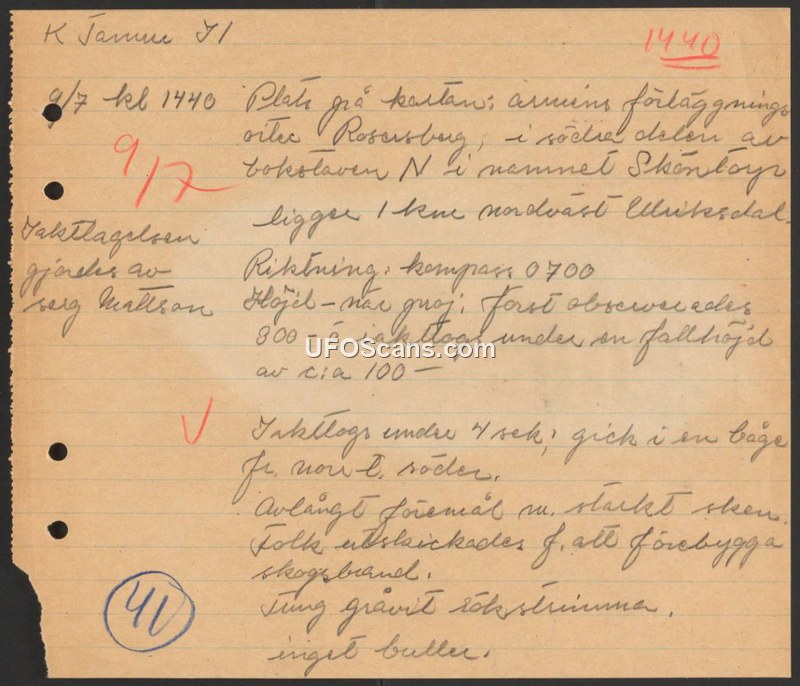 K Tamm I 1
1440
9/7 kl 1440
Plats på kartan: armens förläggnings
orter Rosersberg, i södra delen av
bokstaven N i namnet
9/7
ligger 1 km nordväst Ulriksdal.
Iakttagelsen
gjordes av
serg Mattson
Riktning: kompass 0700
Höjd – när proj. först observerades
300 – å iakttogs under en fallhöjd
av c:a 100 –
UFOScans.com
Iakttogs under 4 sek; gick i en båge
fr. norr t. söder.
Avlångt föremål m. starkt sken.
Folk utskickades f. att förebygga
skogsbrand.
41
Tung gråvit rökstrimma.
inget buller.